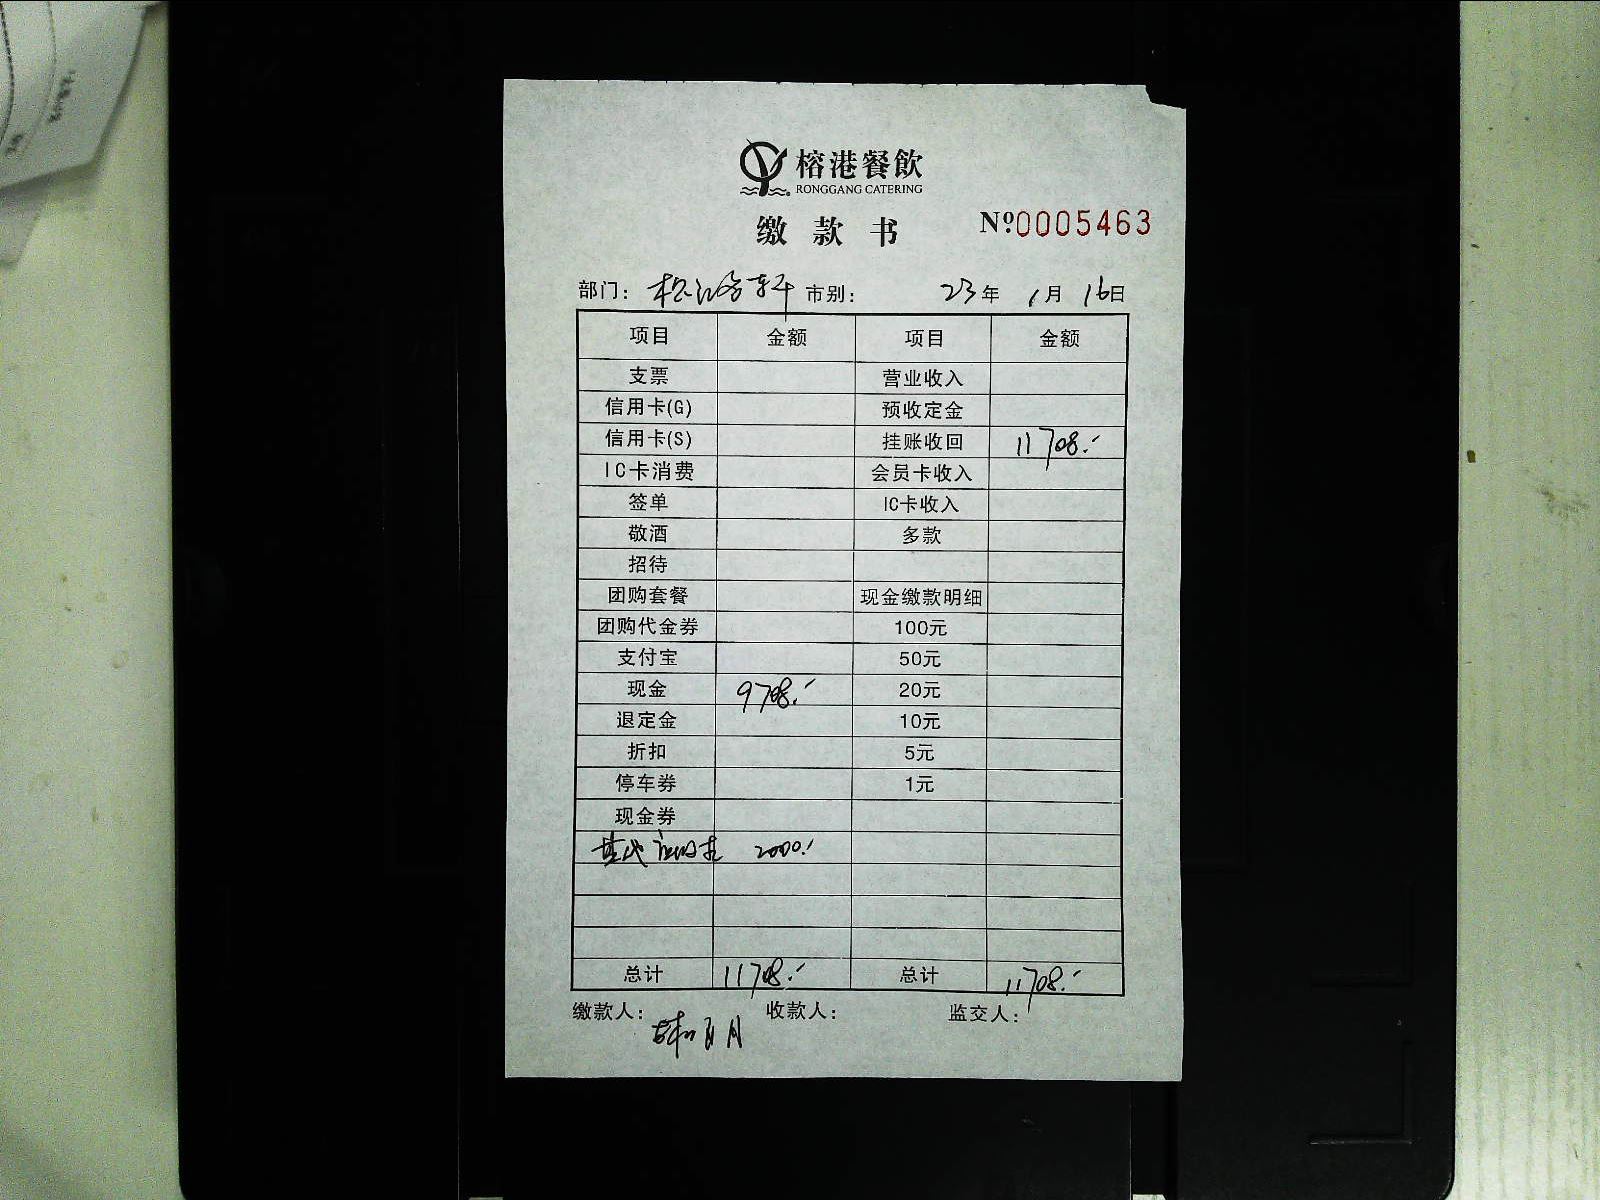 榕港餐飲
RONGGANG CATERING
缴款书 Nº:0005463
部门: 市别: 23年 1月 16日
项目 金额 项目 金额
支票 营业收入
信用卡(G) 预收定金
信用卡(S) 挂账收回 11708.-
IC卡消费 会员卡收入
签单 IC卡收入
敬酒 多款
招待
团购套餐 现金缴款明细
团购代金券 100元
支付宝 50元
现金 9708.- 20元
退定金 10元
折扣 5元
停车券 1元
现金券
2000.-
总计 11708.- 总计 11708.-
缴款人: 收款人: 监交人: